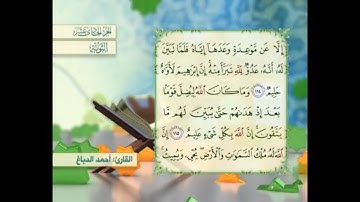 الجزء الحادي عشر
التوبة
إِلَّا عَن مَّوْعِدَةٍ وَعَدَهَا إِيَّاهُ فَلَمَّا تَبَيَّنَ
لَهُ أَنَّهُ عَدُوٌّ لِلَّهِ تَبَرَّأَ مِنْهُ إِنَّ إِبْرَاهِيمَ لَأَوَّاهٌ
حَلِيمٌ ١١٤ وَمَا كَانَ اللَّهُ لِيُضِلَّ قَوْمًا
بَعْدَ إِذْ هَدَاهُمْ حَتَّى يُبَيِّنَ لَهُم مَّا
يَتَّقُونَ إِنَّ اللَّهَ بِكُلِّ شَيْءٍ عَلِيمٌ ١١٥ إِنَّ
اللَّهَ لَهُ مُلْكُ السَّمَاوَاتِ وَالْأَرْضِ يُحْيِي وَيُمِيتُ
القارئ: أحمد الدباغ